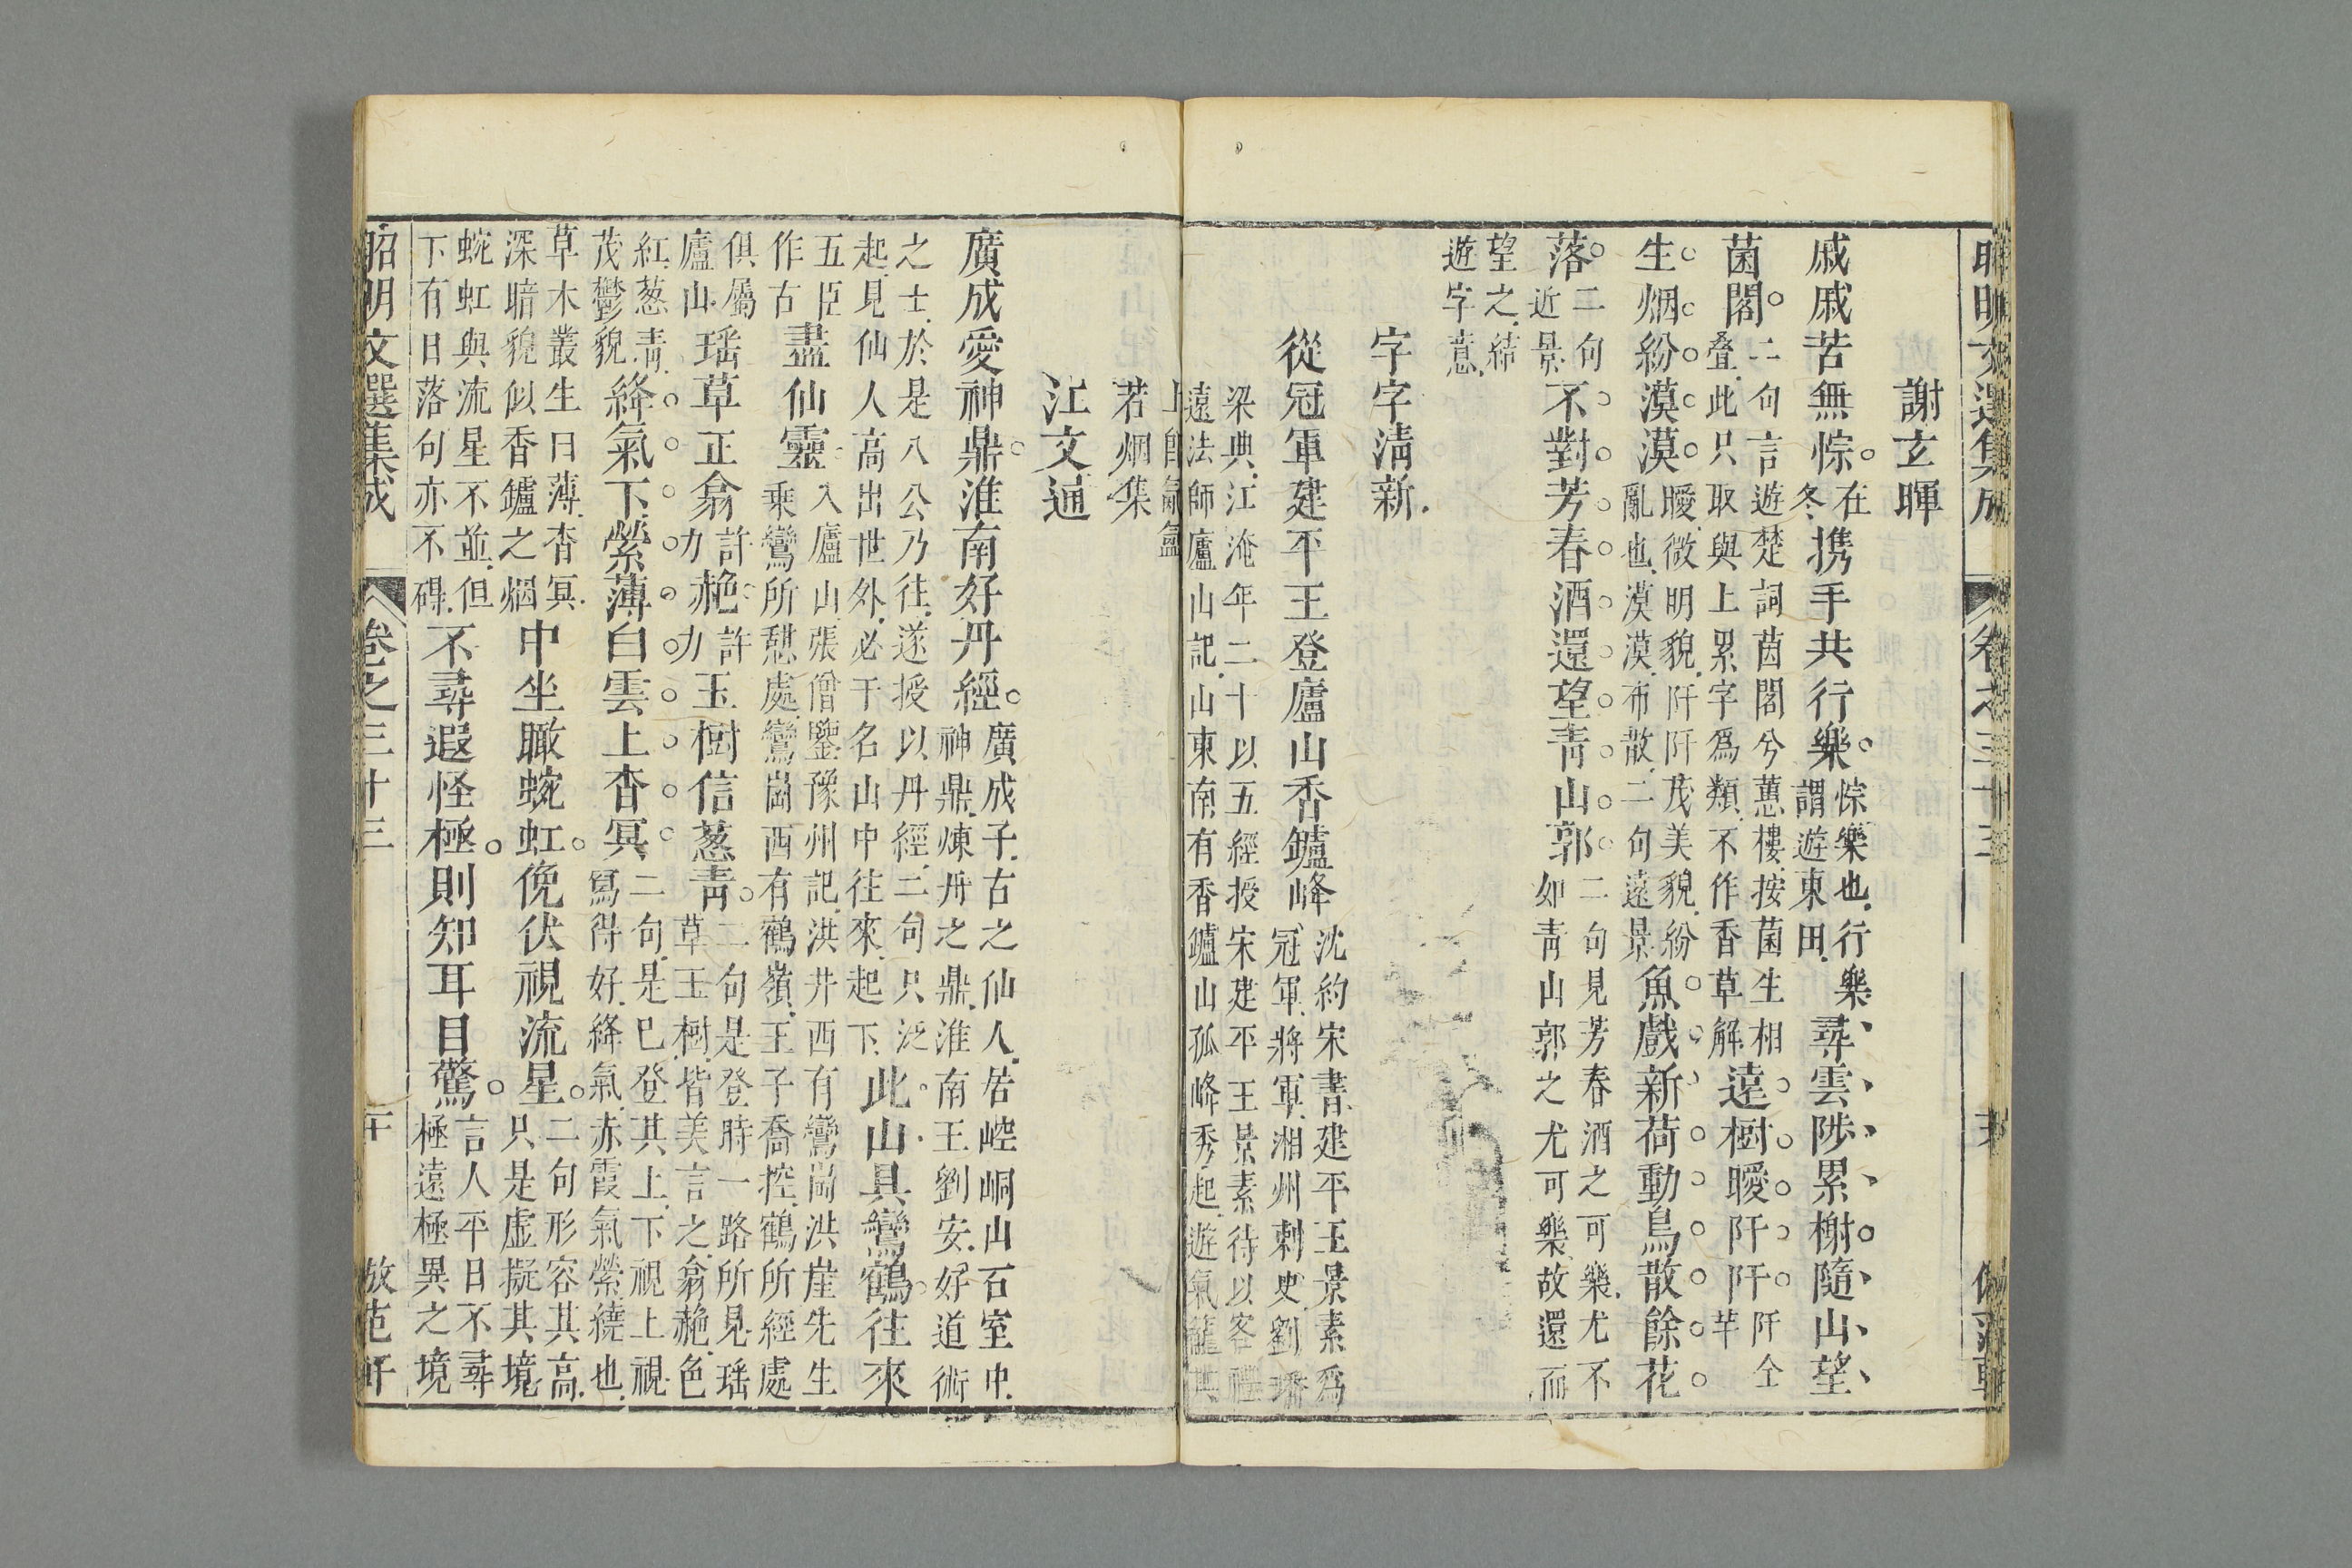 昭明文選集成 卷之三十三
謝玄暉
戚戚苦無悰在冬携手共行樂悰樂也行樂謂遊東田尋雲陟累榭隨山望
菌閣二句言遊楚詞菌閣兮蕙樓按菌生相叠此只取與上累字爲類不作香草解遠樹曖阡阡阡仝芊
生烟紛漠漠曖微明貌阡阡茂美貌紛亂也漠漠布散二句遠景魚戲新荷動鳥散餘花
落二句近景不對芳春酒還望青山郭二句見芳春酒之可樂尤不如青山郭之尤可樂故還而
望之結遊字意
字字清新
從冠軍建平王登廬山香鑪峰沈約宋書建平王景素爲冠軍將軍湘州刺史劉璠
梁典江淹年二十以五經授宋建平王景素待以客禮遠法師廬山記山東南有香鑪山孤峰秀起遊氣籠其
上卽氤氳若烟集
江文通
廣成愛神鼎淮南好丹經廣成子古之仙人居崆峒山石室中神鼎煉丹之鼎淮南王劉安好道術
之士於是八公乃往遂授以丹經二句只泛起見仙人高出世外必于名山中往來起下此山具鸞鶴往來
五臣作古盡仙靈入廬山張僧鑒豫州記洪井西有鸞崗洪崖先生乘鸞所憩處鸞崗西有鶴嶺王子喬控鶴所經處
俱屬廬山瑶草正翕許力赩許力玉樹信葱青二句是登時一路所見瑶草玉樹皆美言之翕赩色
紅葱青茂鬱貌絳氣下縈薄白雲上杳冥二句是已登其上下視上視寫得好絳氣赤霞氣縈繞也
草木叢生曰薄杳冥深暗貌似香鑪之烟中坐瞰蜿虹俛伏視流星二句形容其高只是虛擬其境
蜿虹與流星不並但下有日落句亦不碍不尋遐怪極則知耳目驚言人平日不尋極遠極異之境
昭明文選集成 卷之三十三